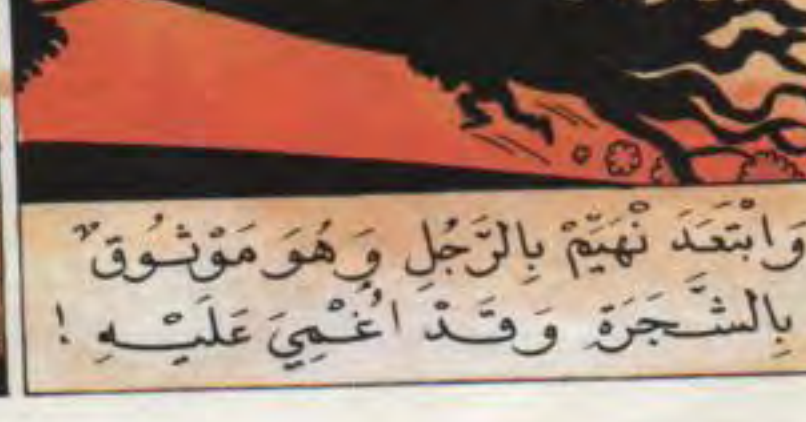 وَابْتَعَدَ نْهَيِّمْ بِالرَّجُلِ وَهُوَ مَوْثُوقٌ
بِالشَّجَرَةِ وَقَدْ اُغْمِيَ عَلَيْهِ !